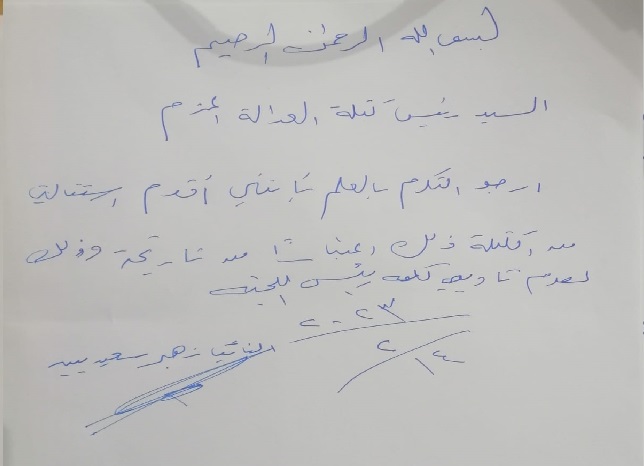 بسم الله الرحمن الرحيم
السيد رئيس كتلة العدالة المحترم
ارجو التكرم بالعلم بأنني أقدم استقالتي
من الكتلة وذلك اعتباراً من تاريخه وذلك
لعدم رئيس اللجنة
٢٠٢٣
٢/١٤
النائب زهير سعيد